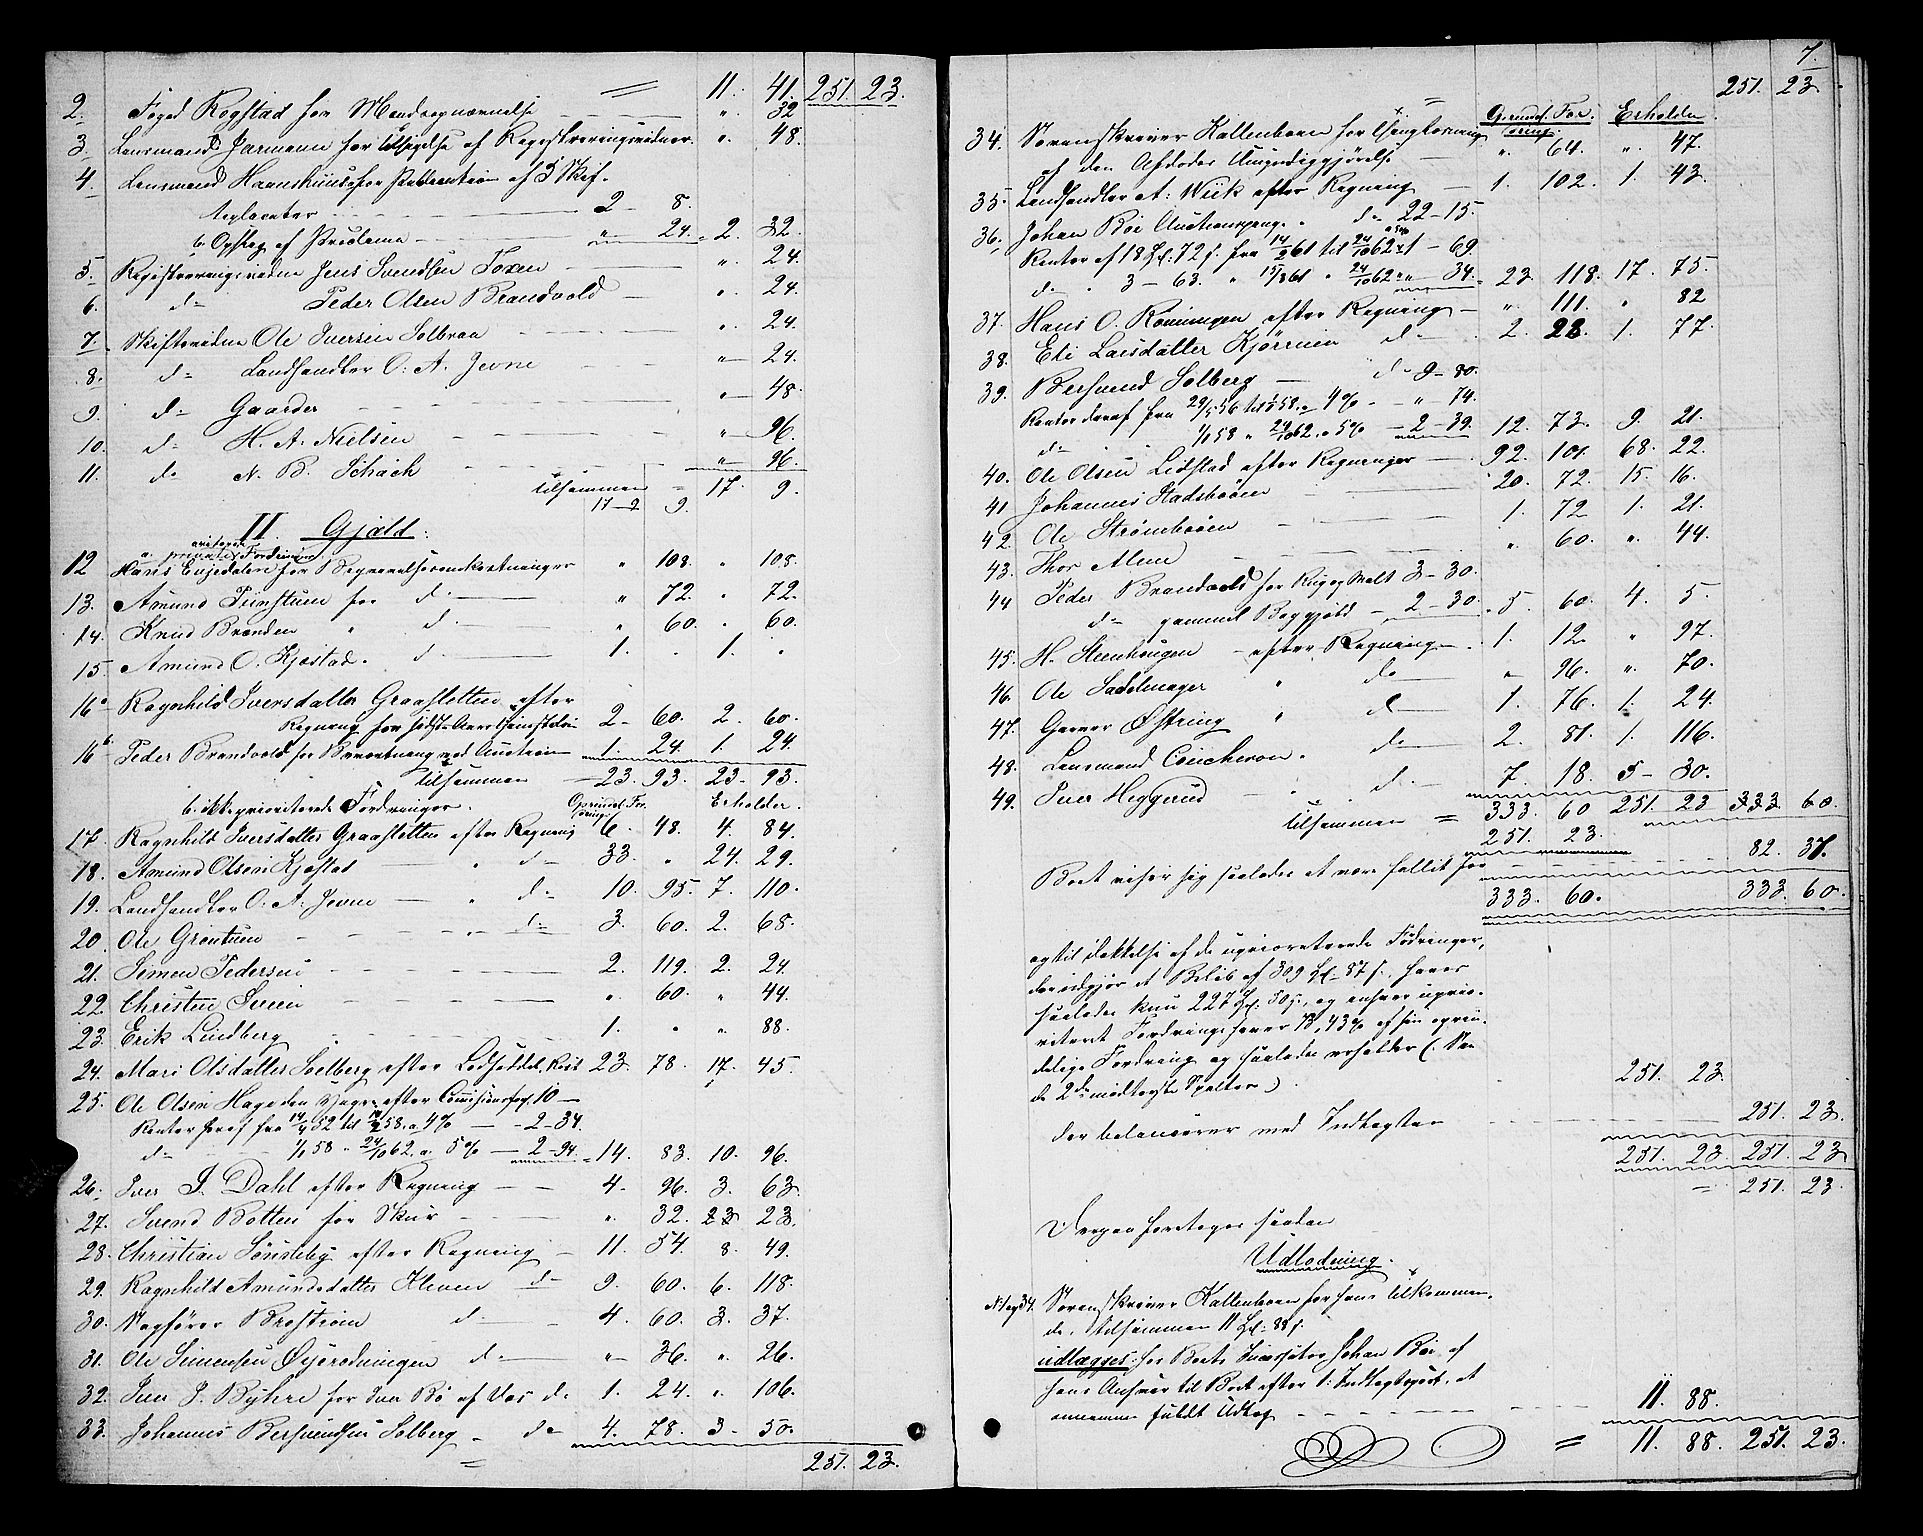 = 11. 41. 251. 23.
2. Foged Rogstad for Mandsopnævnelse " 32
3. Lensmand Jarmann for tilsigelse af Registreringsvidner " 48.
4. Lensmand Haanshuus for Publication af 3 Skif-
teplacater 2 - 8.
b. Opslag af Proclama " 24. = 2. 32.
5. Registreringsvidne Jens Svendsen Toxen " 24.
6. do Peder Olsen Brandvold " 24.
7. Skiftevidne Ole Iversen Solbraa " 24.
8. do Landhandler O. A. Jevne " 24.
9. do Gaarder " 48.
10. do H. A. Nielsen " 96.
11. do N. B. Schach " 96.
tilsammen = 17. 9.
17 - 2 9.
II. Gjæld.
a. privatet Fordringer
12 Hans Engedalen for Begravelsesomkostninger " 108. " 108.
13. Amund Tunstuen for do " 72. " 72.
14. Knud Brænden " do " 60. " 60.
15. Amund O. Kjæstad. do 1. " 1. "
16a Ragnhild Iversdatter Graasletten efter
Regning for sidste Aars Tjenesteløn 2 - 60. 2. 60.
16b Peder Brandvold for Bevertning ved Auction 1. 24. 1. 24.
tilsammen 23. 93. 23. 93.
b. ikke prioriterede Fordringer. Oprindel. For- Erholder.
dring
17. Ragnhild Iversdatter Graasletten efter Regning 6. 48. 4. 84.
18. Amund Olsen Kjæstad " do 33. " 24. 29.
19. Landhandler O. A. Jevne " do 10. 95. 7. 110.
20. Ole Grøntuen " do 3. 60. 2. 68.
21. Simen Pedersen 2. 119. 2. 24.
22. Christen Sveen " 60. " 44.
23. Erik Lindberg 1. " " 88.
24. Mari Olsdatter Soelberg efter Lodseddel, Rest 23. 78. 17. 45.
25. Ole Olsen Hageden Yngre efter Comissionsforl. 10 -
Renter heraf fra 14/4 52 til 1/1 58. a 4% - 2 - 34.
do 1/1 58 " 24/10 62. a. 5% - 2 - 94. = 14. 83. 10. 96.
26. Iver J. Dahl efter Regning 4. 96. 3. 63.
27. Svend Botten for Skur " 32. 23 23.
28. Christian Sønsteby efter Regning 11. 54. 8. 49.
29. Ragnhild Amundsdatter Kleven do 9. 60. 6. 118.
30. Vagfører Brostrøm do 4. 60. 3. 37.
31. Ole Simensen Øyerodningen do " 36. " 26.
32. Iver J. Byhre for Iver Bø af Vos do 1. 24. " 106.
33. Johannes Bersvendsen Solberg do 4. 78. 3 - 50.
= 251. 23.
7.
= 251. 23.
Oprindl. For- Erholder.
dring.
34. Sorenskriver Kaltenborn for Thinglæsning
af den Afdødes Umyndiggjørelse " 64. " 47.
35. Landhandler A: Wiik efter Regning 1. 102. 1. 43.
36. Johan Bøe Auctionspenge do 22 - 15.
Renter af 18 Spd. 72 s. fra 14/2 61 til 24/10 62 a 5% 1 - 69.
do " 3 - 63. " 15/3 61 " 24/10 62 " " 34. = 23. 118. 17. 75.
37. Hans O. Rønningen efter Regning " 111. " 82
38. Eli Larsdatter Kjørrum do 2. 28. 1. 77.
39. Bersvend Solberg do 9 - 80.
Renter deraf fra 29/5 56 til 1/1 58. a 4% - " 74.
do 1/1 58 " 24/10 62. a 5% - 2 - 39. 12. 73. 9. 21.
40. Ole Olsen Lidstad efter Regninger 92. 101. 68. 22.
41 Johannes Stadsbøen 20. 72. 15. 16.
42. Ole Strømbøen 1. 72 1. 21.
43. Thor Alme " 60. " 44.
44 Peder Brandvold for Rug og Malt 3 - 30.
do gammel Boggjæld - 2 - 30. = 5. 60. 4. 5.
45. H. Steenhaugen efter Regning 1. 12. " 97.
46. Ole Sadelmager " do " 96. " 70.
47. Garver Østring " do 1. 76. 1. 24.
48. Lensmand Coucheron " do 2. 81. 1. 116.
49. Iver Heggerud do 7. 18. 5 - 30.
tilsammen = 333. 60 251. 23 333 60.
251. 23.
Boet viser sig saaledes at være fallit for 82. 37.
333. 60. 333. 60.
og til Dækkelse af de uprioriterede Fordringer,
der udgjør et Beløb af 309 Spd. 87 s., haves
saaledes kun 227 Spd. 50 s., og enhver uprio-
riteret Fordring haver 73,43% af sin oprin-
delige Fordring og saaledes erholder (. Se
de 2de modtagte Spalter.) 251. 23.
der balancerer med Indtægten 251. 23.
251. 23 251. 23
= 251. 23.
Derpaa foretoges saadan
Udlodning.
No 1 og 34. Sorenskriver Kaltenborn for hans tilkommen-
de, tilsammen 11 Spd. 88 s.
udlægges hos Boets Incassator Johan Bøe af
hans Ansvar til Boet efter 1. Indtægtspost, at
annamme fuldt Udlæg 11 88.
= 11. 88. 251. 23.